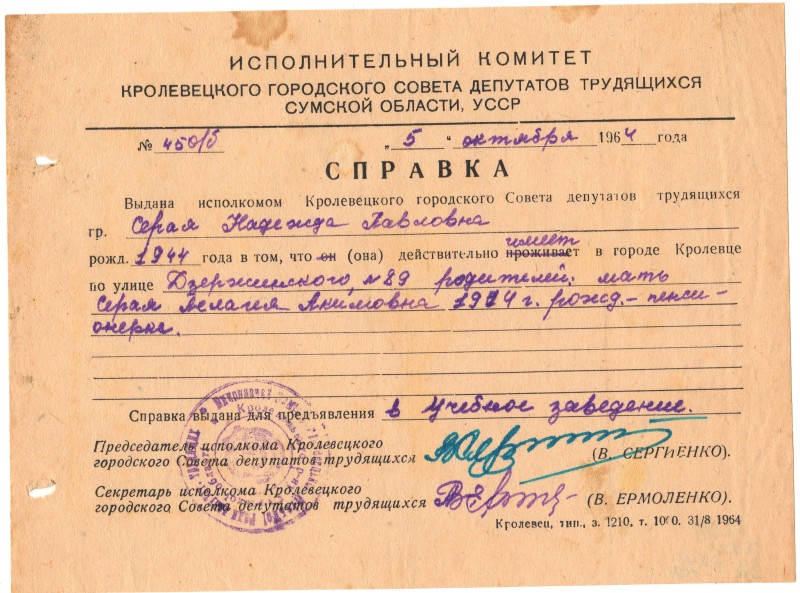 ИСПОЛНИТЕЛЬНЫЙ КОМИТЕТ
КРОЛЕВЕЦКОГО ГОРОДСКОГО СОВЕТА ДЕПУТАТОВ ТРУДЯЩИХСЯ
СУМСКОЙ ОБЛАСТИ, УССР
№ 450/б „5“ октября 1964 года
СПРАВКА
Выдана исполкомом Кролевецкого городского Совета депутатов трудящихся
гр. Серая Надежда Павловна
рожд. 1944 года в том, что он (она) действительно проживает имеет в городе Кролевце
по улице Дзержинского, №89 родителей: мать
Серая Пелагия Акимовна 1914 г. рожд. - пенси-
онерка.
Справка выдана для предъявления в учебное заведение.
Председатель исполкома Кролевецкого
городского Совета депутатов трудящихся (В. СЕРГИЕНКО).
Секретарь исполкома Кролевецкого
городского Совета депутатов трудящихся (В. ЕРМОЛЕНКО).
Кролевец, тип., з. 1210, т. 1000. 31/8 1964